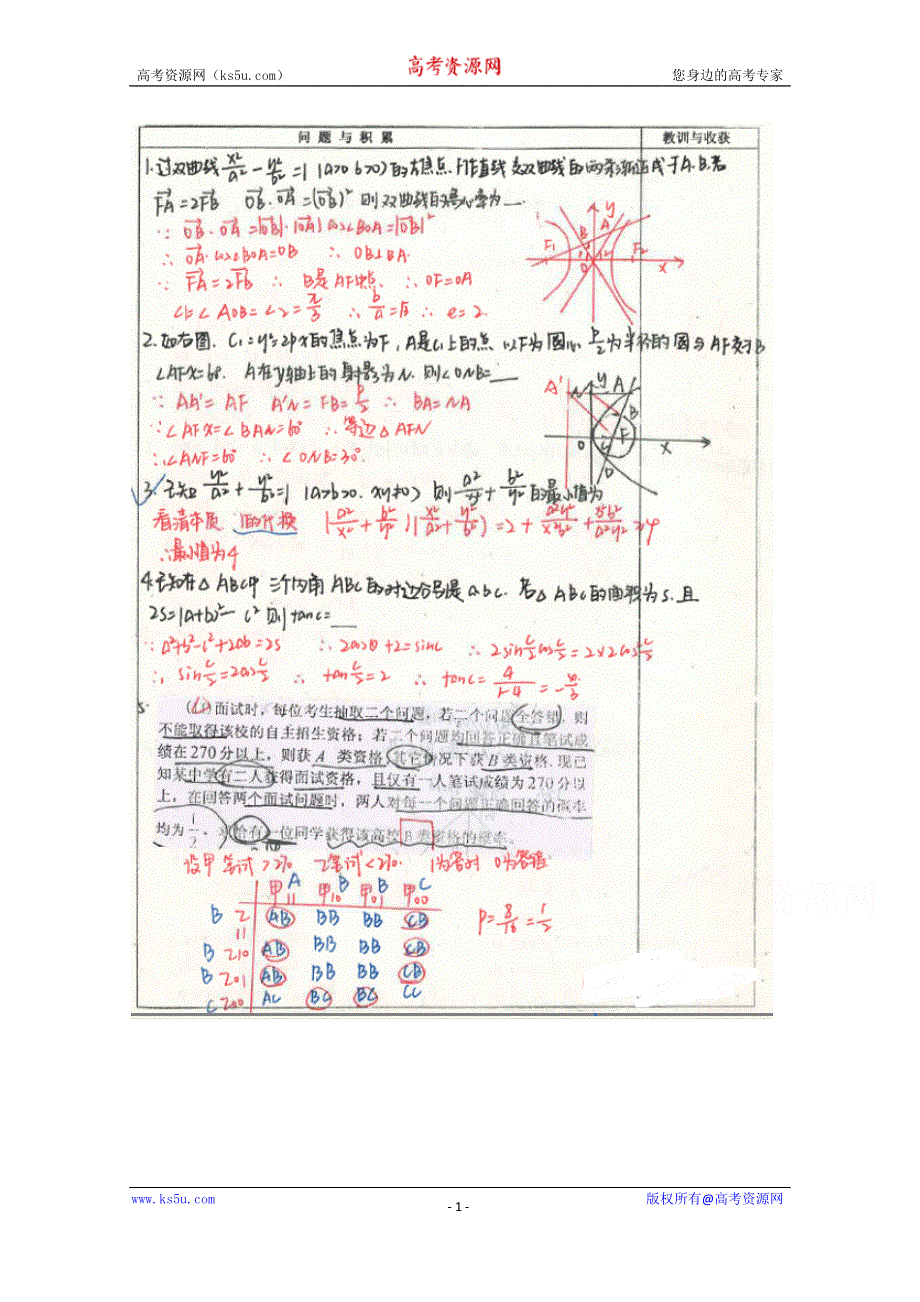 高考资源网（ks5u.com） 高考资源网 您身边的高考专家
问题与积累 教训与收获
1.过双曲线x²/a²-y²/b²=1 (a>0 b>0)的左焦点F作直线交双曲线的两条渐近线于A.B.若
FA=2FB OB·OA=|OB|² 则双曲线的离心率为__.
∵ OB·OA=|OB|·|OA|cos∠BOA=|OB|²
∴ OA·cos∠BOA=OB ∴ OB⊥BA.
∵ FA=2FB ∴ B是AF中点. ∴ OF=OA
∠1=∠AOB=∠2=π/3 ∴ b/a=√3 ∴ e=2.
y A B F1 F2 1 2 O x
2.如右图. C1=y²=2px的焦点为F,A是C1上的点 以F为圆心 p/2为半径的圆与AF交于B
∠AFx=60°. A在y轴上的射影为N.则∠ONB=__
∵ AA'=AF A'N=FB=p/2 ∴ BA=NA
∵∠AFx=∠BAN=60° ∴等边△AFN
∴∠ANF=60° ∴ ∠ONB=30°.
A' N y A B F O x
3.已知 y²/a²+y²/b²=1 (a>b>0. xy≠0) 则 a²/x²+b²/y² 的最小值为
看清本质 1的代换 (a²/x²+b²/y²)(x²/a²+y²/b²)=2+a²y²/x²b²+x²b²/a²y²≥4
∴最小值为4
4.已知在△ABC中 三个内角ABC的对边分别是a.b.c. 若△ABC的面积为S.且
2S=(a+b)²-c² 则tanC=__
∵a²+b²-c²+2ab=2S ∴ 2cosθ+2=sinC ∴ 2sinC/2cosC/2=2×2cos²C/2
∴ sinC/2=2cosC/2 ∴ tanC/2=2 ∴ tanC=4/1-4=-4/3
5.
面试时，每位考生抽取二个问题，若二个问题全答错，则
不能取得该校的自主招生资格；若二个问题均回答正确且笔试成
绩在270分以上，则获A类资格；其它情况下获B类资格.现已
知某中学有二人获得面试资格，且仅有一人笔试成绩为270分以
上，在回答两个面试问题时，两人对每一个问题正确回答的概率
均为1/2，求恰有一位同学获得该高校B类资格的概率.
设甲笔试>270 乙笔试<270. 1为答对 0为答错
甲11 A 甲10 B 甲01 B 甲00 C
B 乙11 AB BB BB CB P=8/16=1/2
B 乙10 AB BB BB CB
B 乙01 AB BB BB CB
C 乙00 AC BC BC CC
www.ks5u.com - 1 - 版权所有@高考资源网